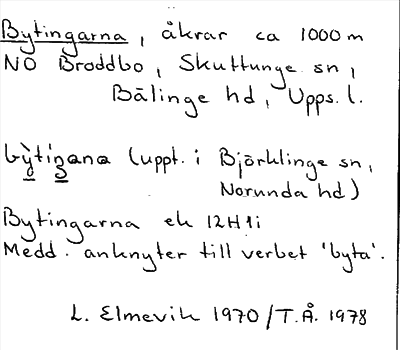 Bytingarna, åkrar ca 1000 m
NO Broddbo, Skuttunge sn,
Bälinge hd, Upps. l.
bỳtiŋana (uppt. i Björklinge sn,
Norunda hd)
Bytingarna ek 12H1i
Medd. anknyter till verbet 'byta'.
L. Elmevik 1970/T.Å. 1978